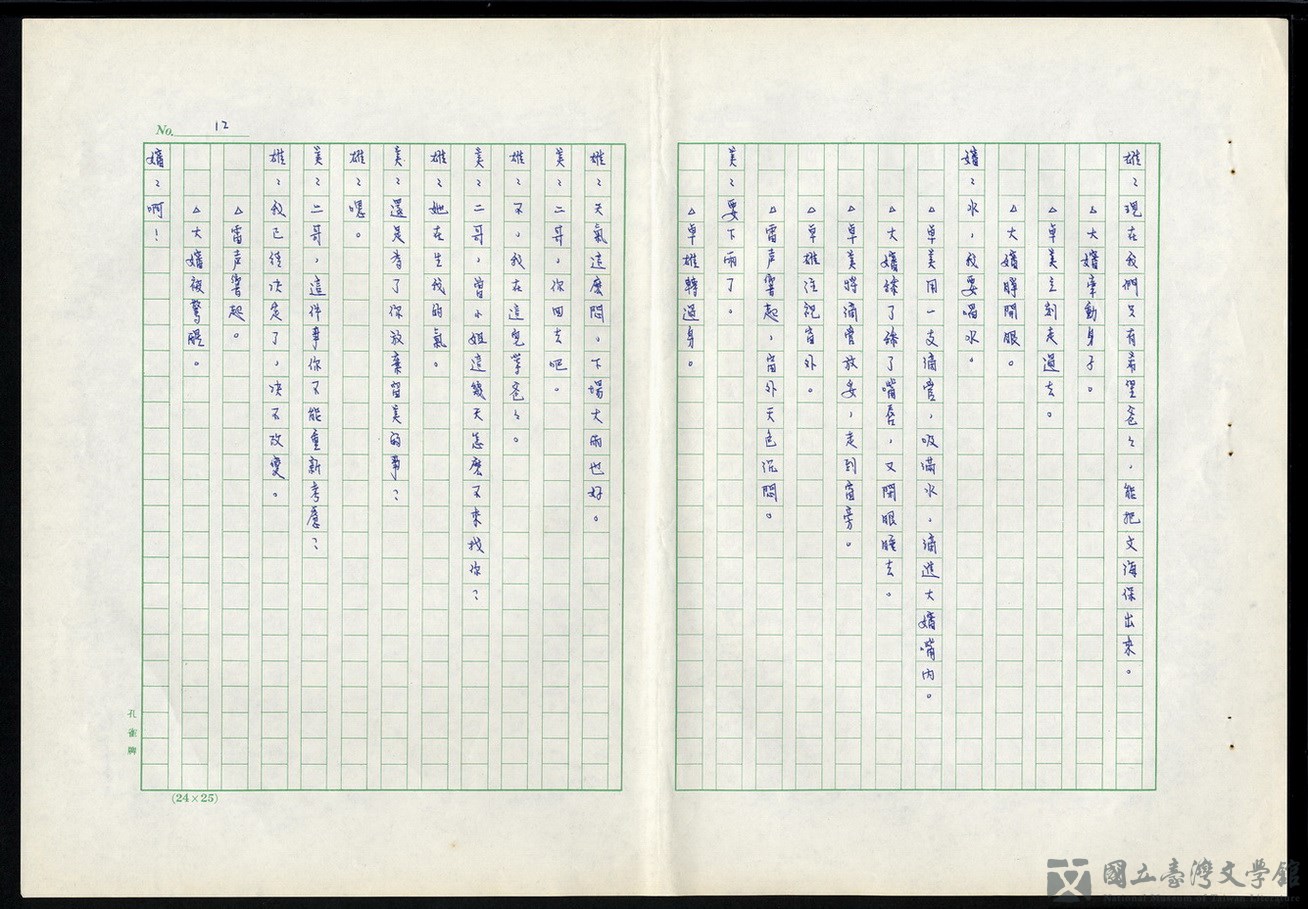 雄：現在我們只有希望爸々，能把文海保出來。
△大嬸牽動身子。
△卓美立刻走過去。
△大嬸睜開眼。
嬸：水，我要喝水。
△卓美用一支滴管，吸滿水，滴進大嬸嘴內。
△大嬸舔了舔了嘴唇，又閉眼睡去。
△卓美將滴管放妥，走到窗旁。
△卓雄注視窗外。
△雷声響起，窗外天色沉悶。
美：要下雨了。
△卓雄轉過身。
雄：天氣這麼悶，下場大雨也好。
美：二哥，你回去吧。
雄：不，我在這兒等爸々。
美：二哥，曾小姐這幾天怎麼不來找你？
雄：她在生我的氣。
美：還是為了你放棄留美的事？
雄：嗯。
美：二哥，這件事你不能重新考慮？
雄：我已經決定了，決不改變。
△雷声響起。
△大嬸被驚醒。
嬸：啊！
No. 12
孔雀牌
(24×25)
國立臺灣文學館
National Museum of Taiwan Literature